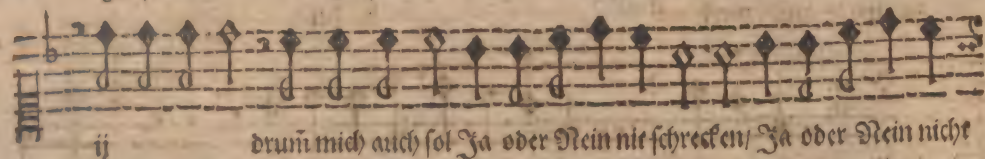 ij drum̃ mich auch sol Ja oder Nein nit schrecken/ Ja oder Nein nicht